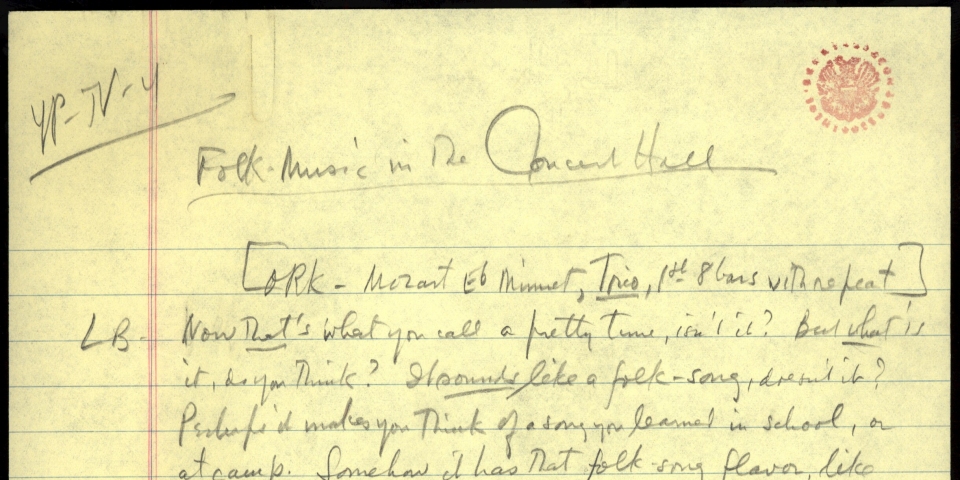 YP-TV-4
Folk-Music in The Concert Hall
[ORK - Mozart Eb Minuet, Trio, 1st 8 bars with repeat]
LB. Now That's what you call a pretty tune, isn't it? But what is
it, do you Think? It sounds like a folk-song, doesn't it?
Perhaps it makes you Think of a song you learned in school, or
at camp. Somehow it has That folk-song flavor, like